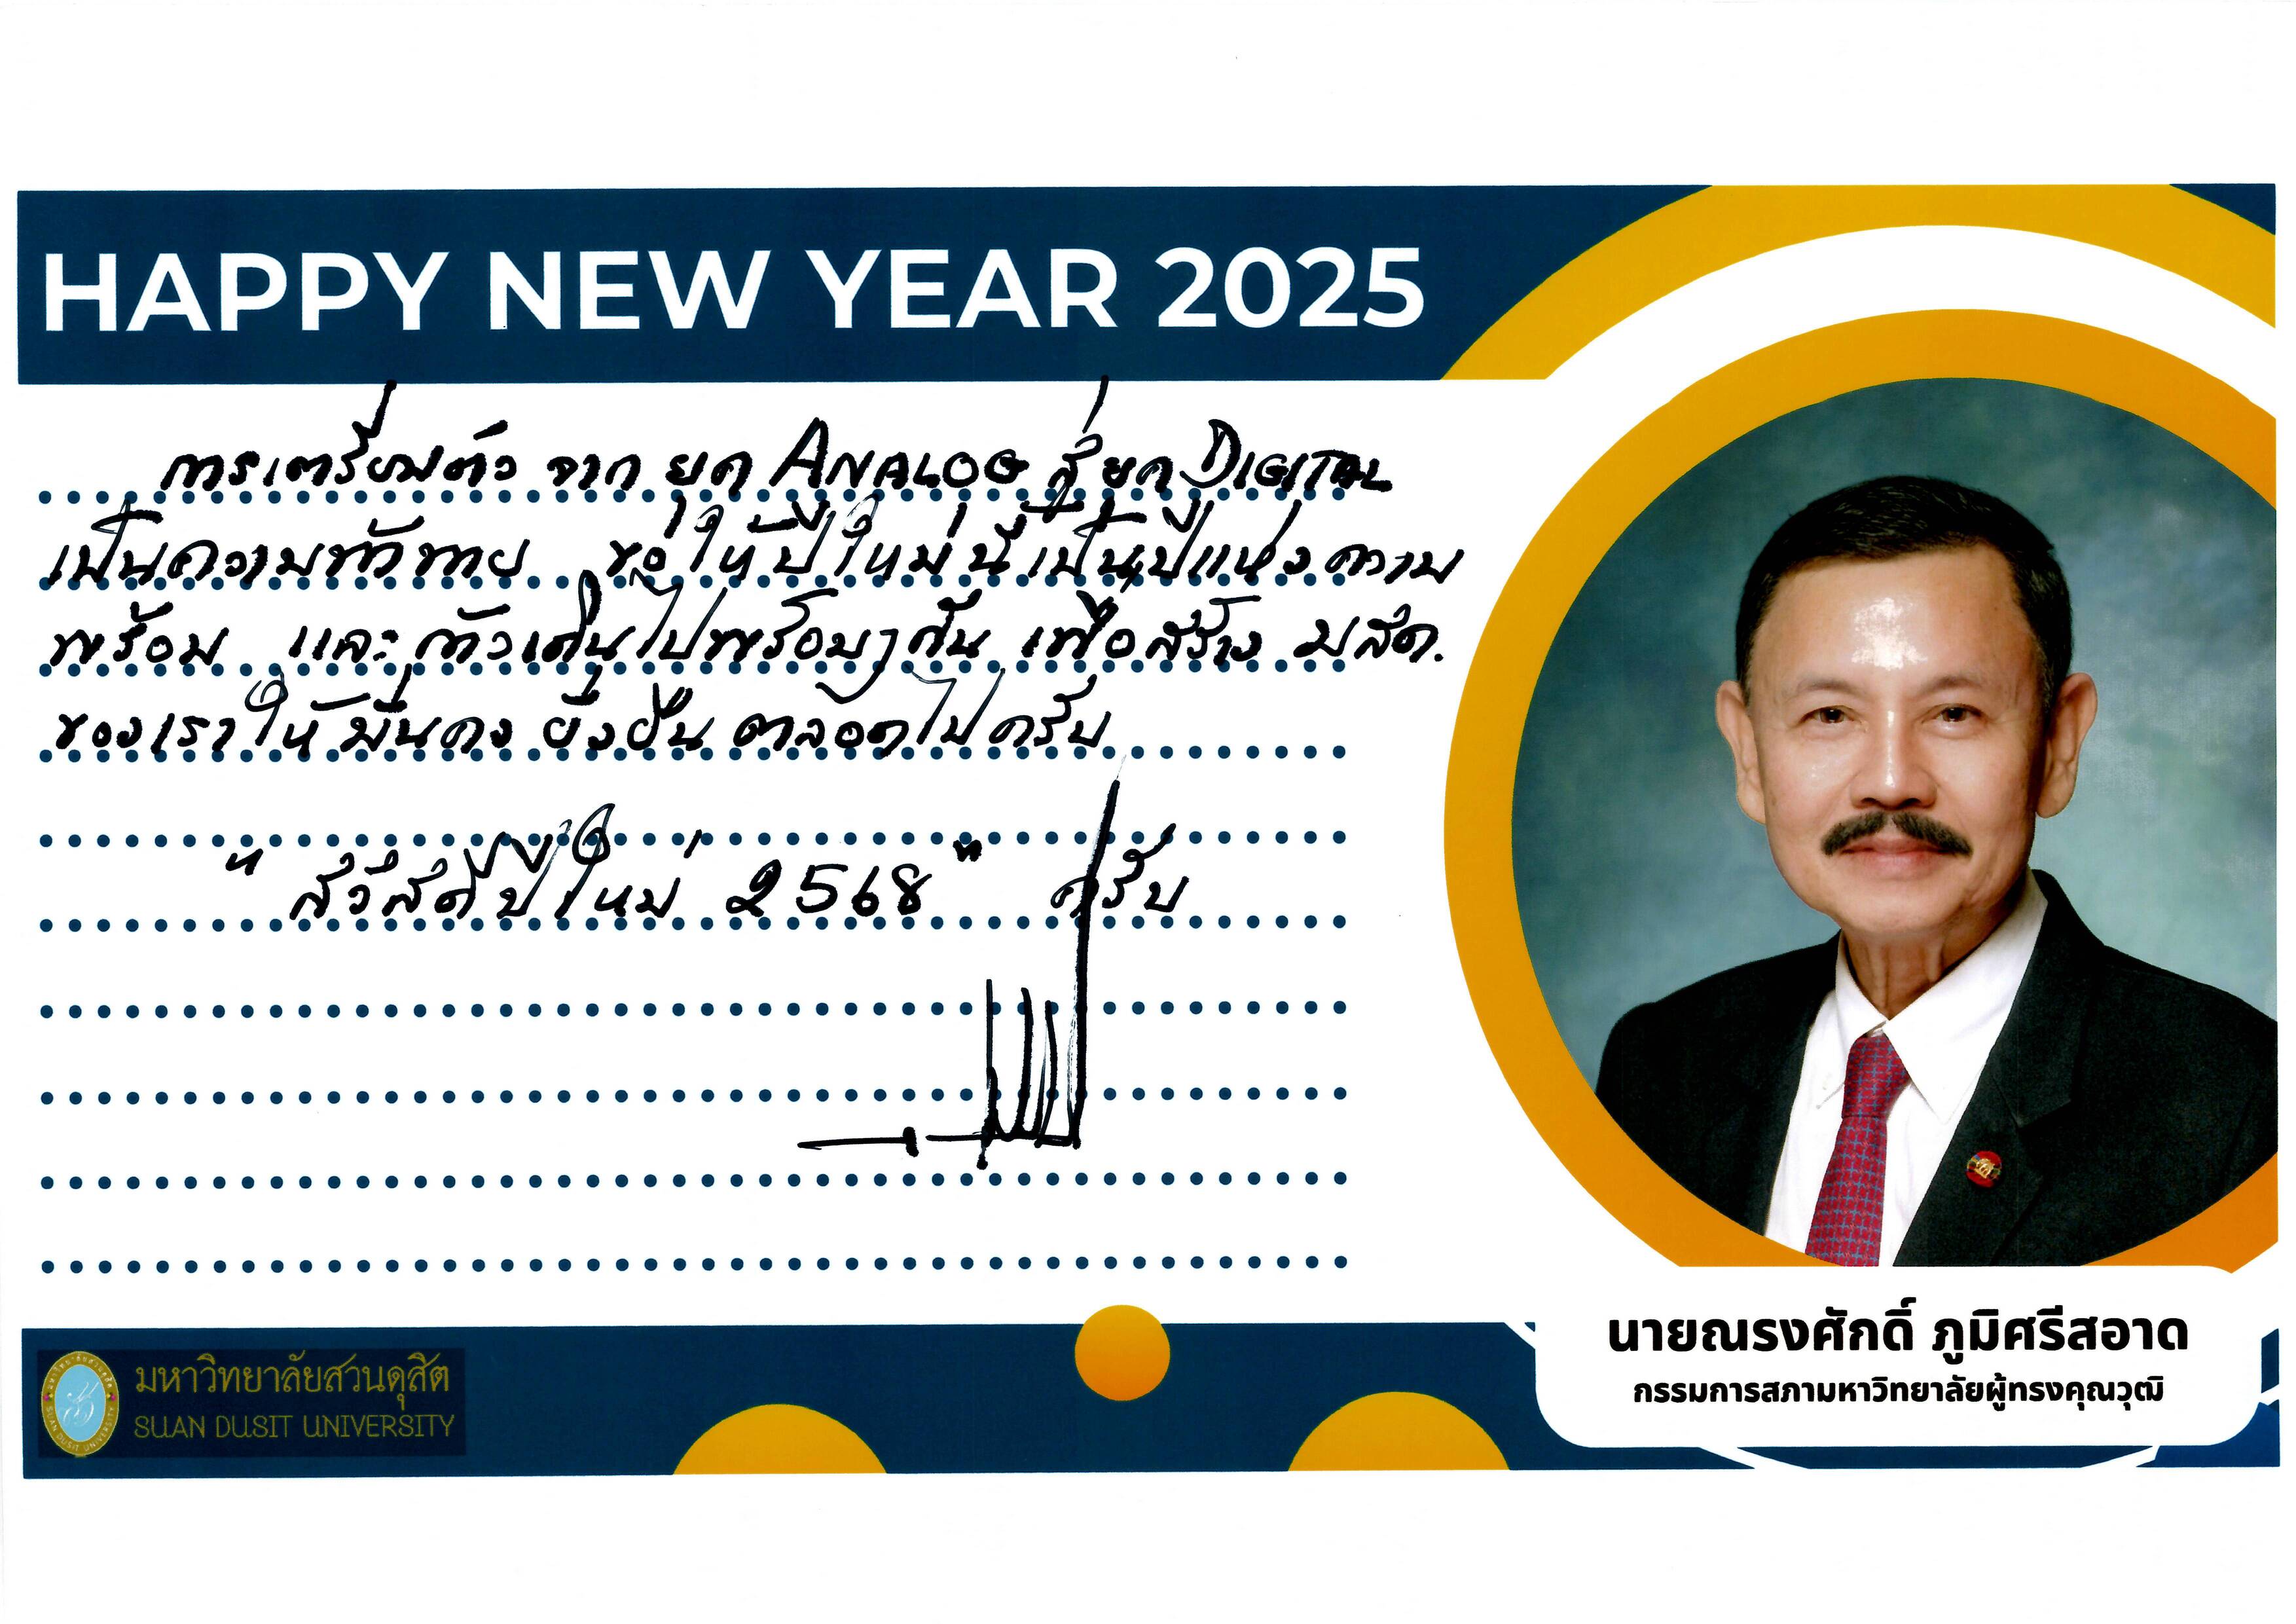 HAPPY NEW YEAR 2025
การเตรียมตัว จาก ยุค ANALOG สู่ยุค DIGITAL
เป็นความท้าทาย ขอให้ปีใหม่นี้เป็นปีแห่งความ
พร้อม และก้าวเดินไปพร้อมๆกัน เพื่อสร้าง มสด.
ของเราให้มั่นคง ยั่งยืน ตลอดไปครับ
"สวัสดีปีใหม่ 2568" ครับ
นายณรงศักดิ์ ภูมิศรีสอาด
กรรมการสภามหาวิทยาลัยผู้ทรงคุณวุฒิ
มหาวิทยาลัยสวนดุสิต
SUAN DUSIT UNIVERSITY